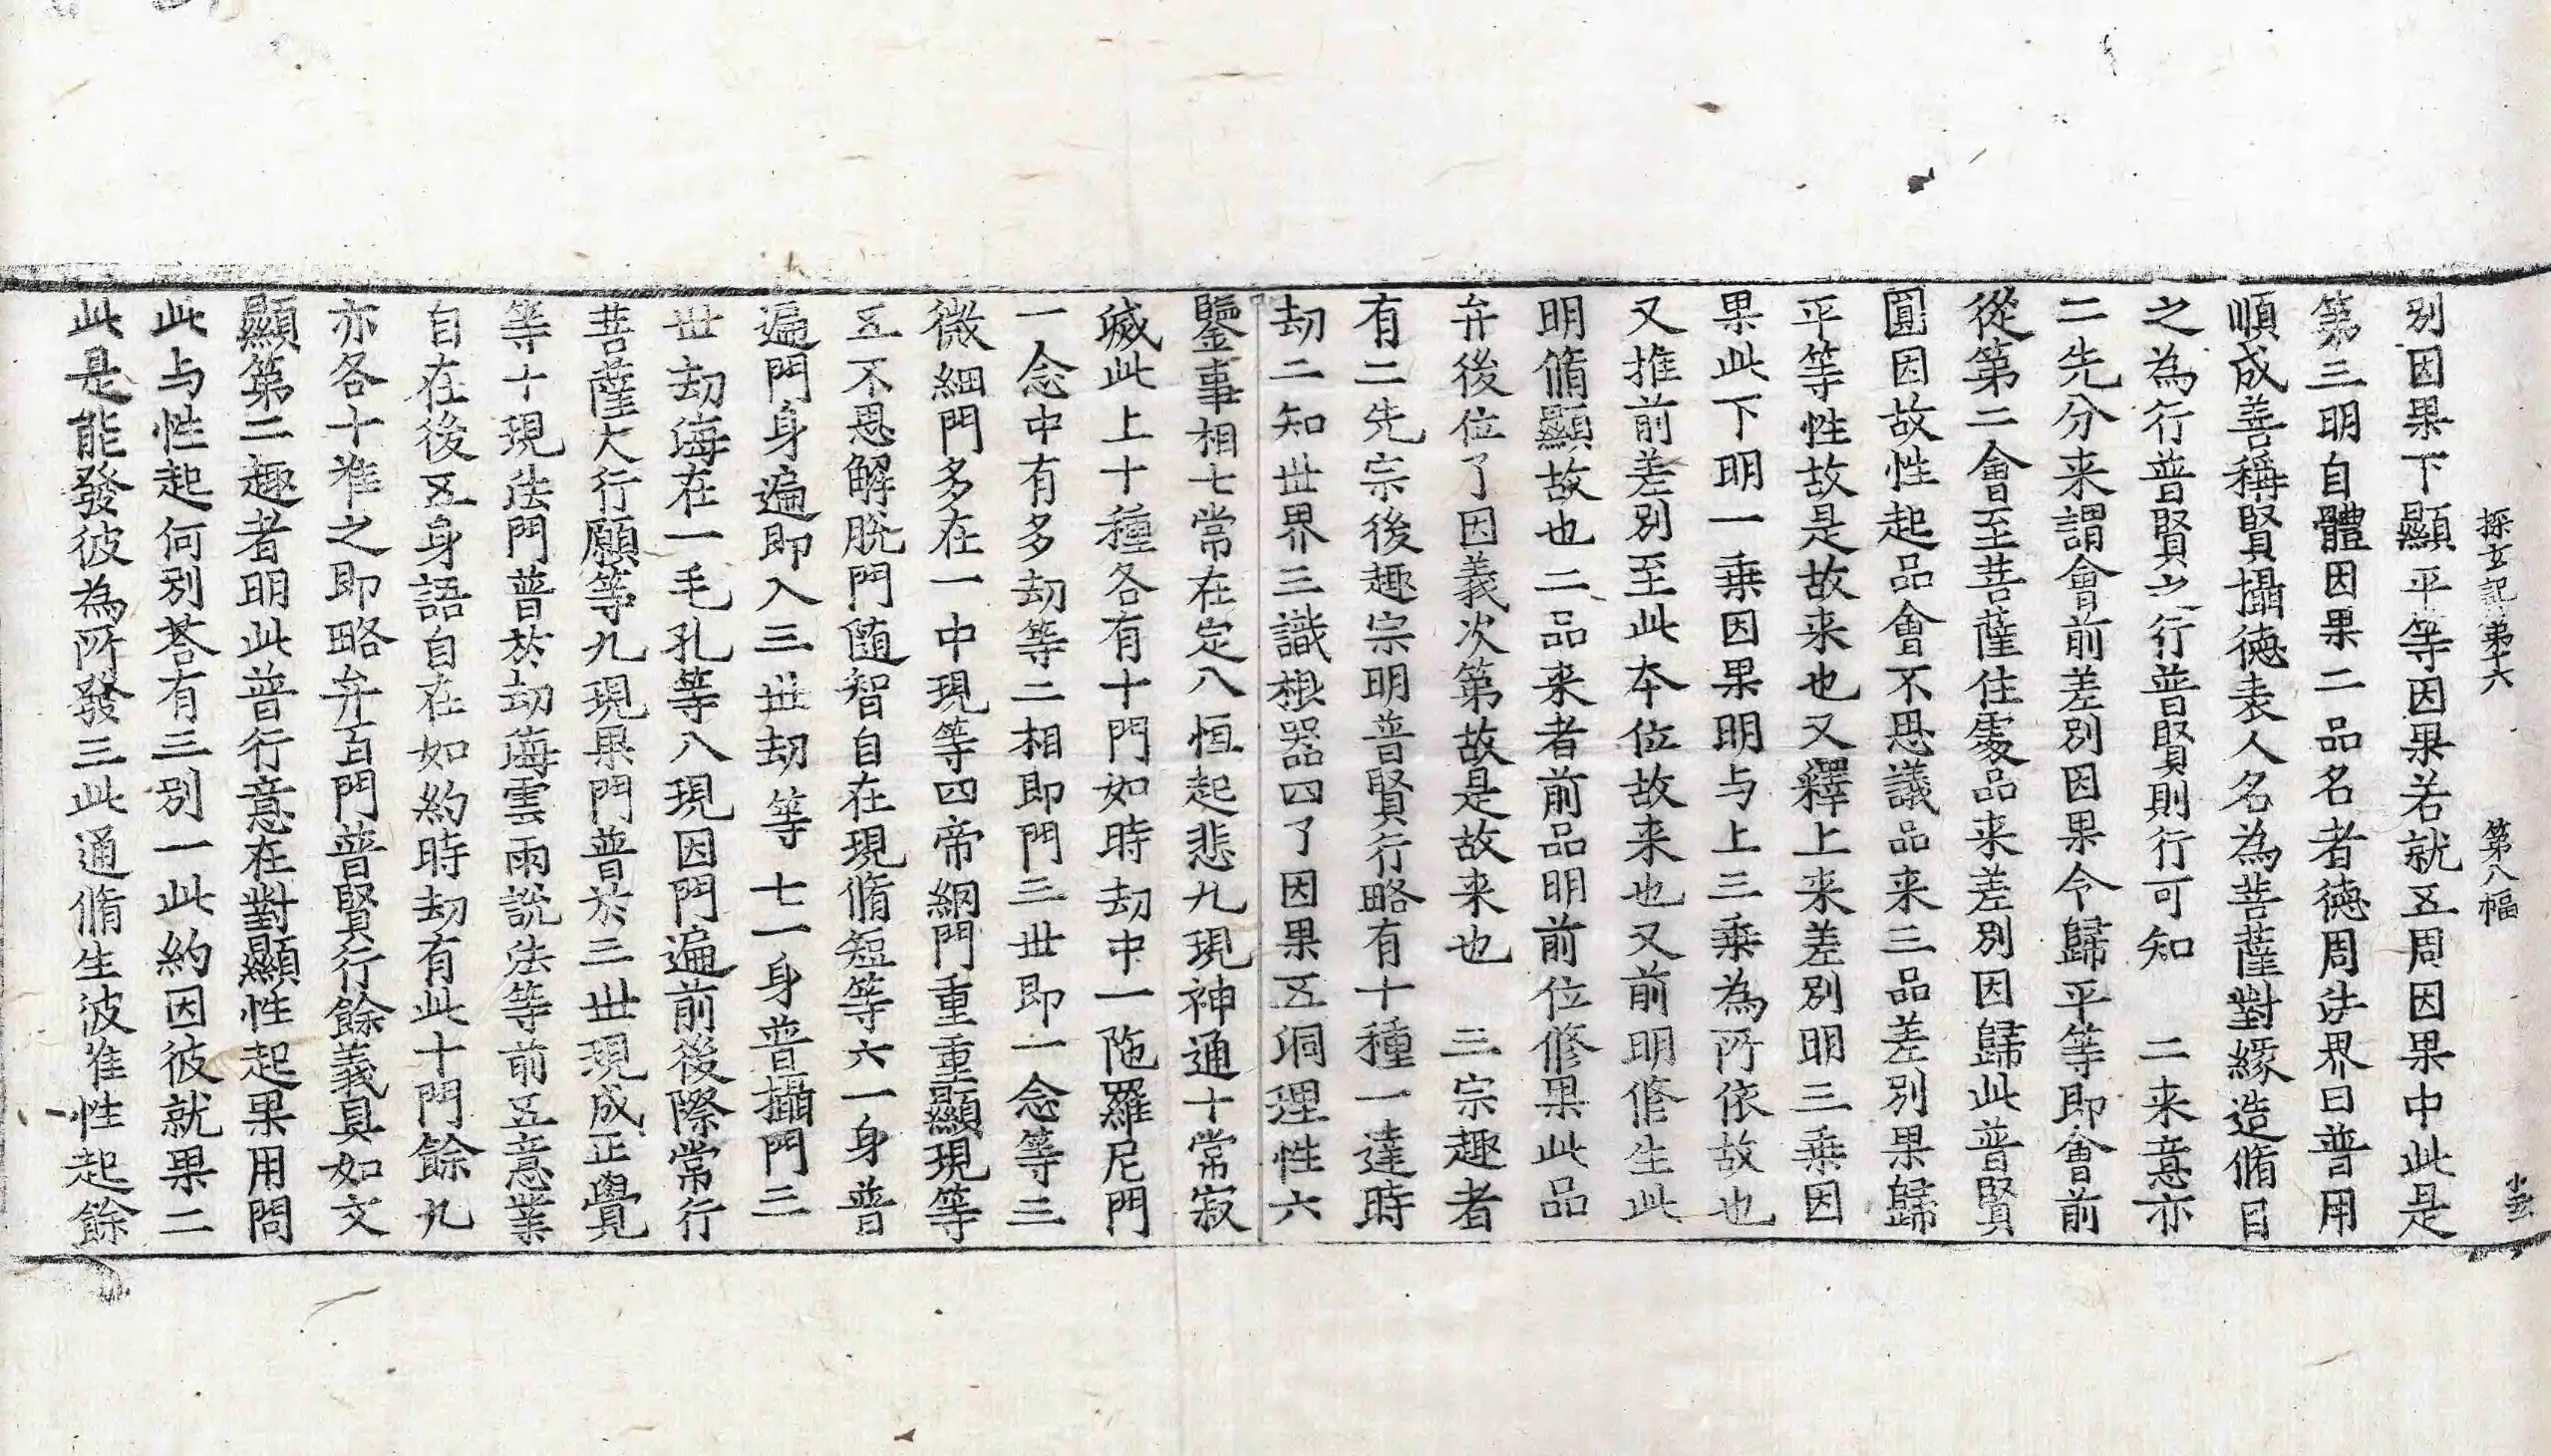 探玄記第六 第八幅
別因果下顯平等因果若就五周因果中此是
第三明自體因果二品名者德周法界曰普用
順成善稱賢攝德表人名為菩薩對緣造脩目
之為行普賢之行普賢則行可知 二来意亦
二先分来謂會前差別因果令歸平等即會前
從第二會至菩薩住處品来差別因歸此普賢
圓因故性起品會不思議品来三品差別果歸
平等性故是故来也又釋上来差別明三乗因
果此下明一乗因果明与上三乗為所依故也
又推前差別至此本位故来也又前明修生此
明脩顯故也二品来者前品明前位修果此品
弁後位了因義次第故是故来也 三宗趣者
有二先宗後趣宗明普賢行略有十種一達時
劫二知世界三識根器四了因果五洞理性六
鑒事相七常在定八恒起悲九現神通十常寂
滅此上十種各有十門如時劫中一陁羅尼門
一念中有多劫等二相即門三世即一念等三
微細門多在一中現等四帝網門重重顯現等
五不思解脱門随智自在現脩短等六一身普
遍門身遍即入三世劫等七一身普攝門三
世劫海在一毛孔等八現因門遍前後際常行
菩薩大行願等九現果門普於三世現成正覺
等十現法門普於劫海雲雨說法等前五意業
自在後五身語自在如約時劫有此十門餘九
亦各十准之即略弁百門普賢行餘義具如文
顯第二趣者明此普行意在對顯性起果用問
此与性起何別荅有三別一此約因彼就果二
此是能發彼為所發三此通脩生彼唯性起餘